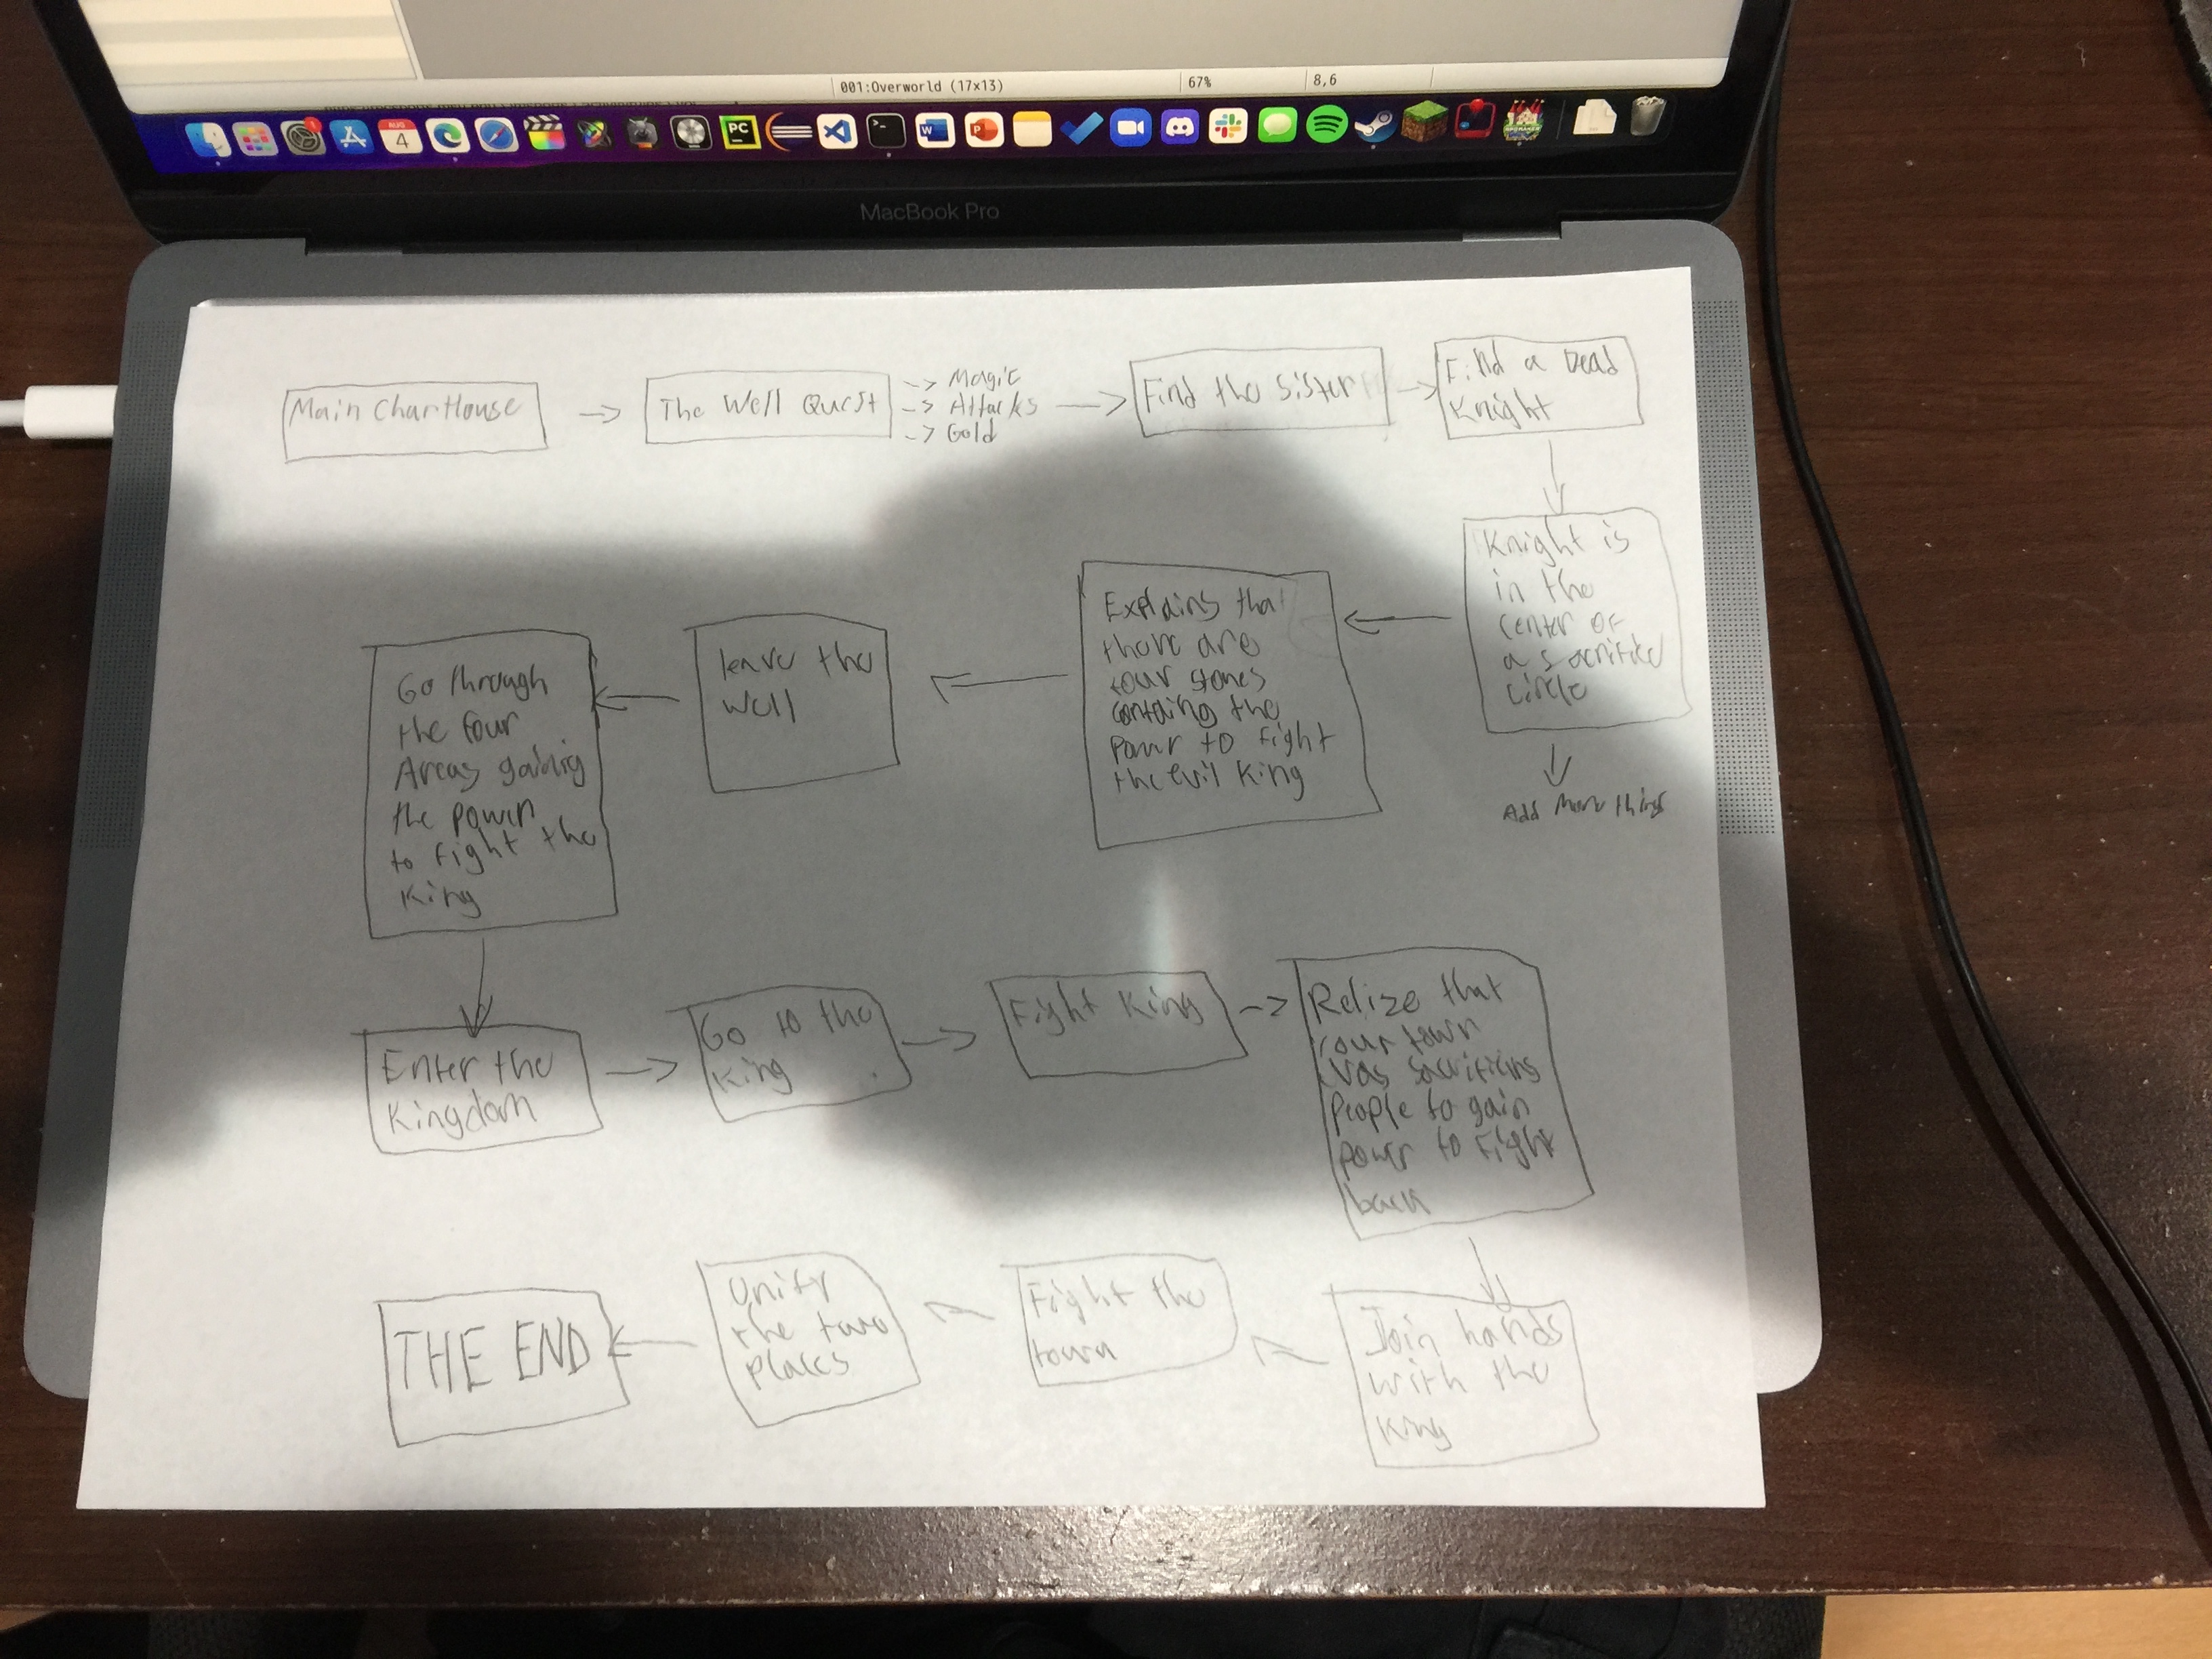 001:Overworld (17x13)
67%
8,6
AUG
4
1
PC
MacBook Pro
Main CharHouse
The Well Quest
-> Magic
-> Attacks
-> Gold
Find the Sister
Find a Dead
Knight
Knight is
in the
center of
a sacrifice
circle
Add More things
Explains that
there are
four stones
containg the
power to fight
the evil King
leave the
Well
Go through
the four
Areas gainig
the power
to fight the
King
Enter the
Kingdom
Go to the
King
Fight King
Relize that
your town
Was Sacrificing
People to gain
power to Fight
back
Join hands
with the
King
Fight the
town
Unify
the two
places
THE END